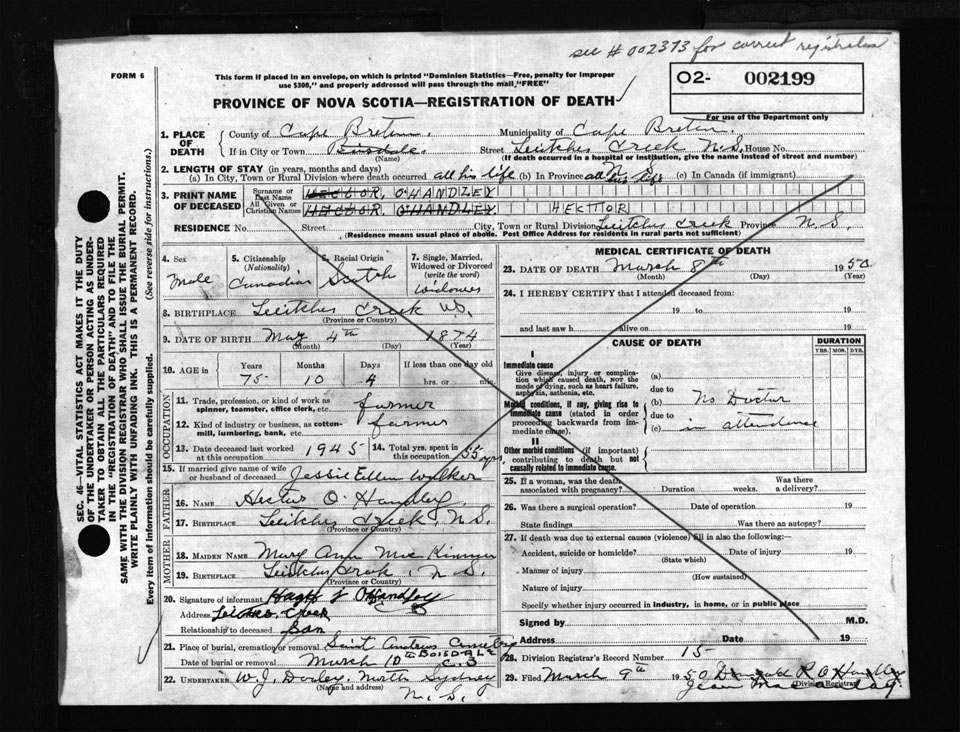 see # 002373 for correct registration
FORM 6
This form if placed in an envelope, on which is printed "Dominion Statistics—Free, penalty for improper
use $300," and properly addressed will pass through the mail "FREE"
O2- 002199
For use of the Department only
PROVINCE OF NOVA SCOTIA—REGISTRATION OF DEATH
1. PLACE OF DEATH
County of Cape Breton. Municipality of Cape Breton.
If in City or Town Boisdale. (Name) Street Leitches Creek N.S. House No.
(If death occurred in a hospital or institution, give the name instead of street and number)
2. LENGTH OF STAY (in years, months and days)
(a) In City, Town or Rural Division where death occurred all his life (b) In Province N.S. all his life (c) In Canada (if immigrant)
3. PRINT NAME OF DECEASED
Surname or Last Name HECTOR, OHANDLEY
All Given or Christian Names HECTOR, OHANDLEY. HECTOR
RESIDENCE No. Street City, Town or Rural Division Leitches Creek Province N.S.
(Residence means usual place of abode. Post Office Address for residents in rural parts not sufficient)
4. Sex Male
5. Citizenship (Nationality) Canadian
6. Racial Origin Scotch
7. Single, Married, Widowed or Divorced (write the word) Widower
8. BIRTHPLACE Leitches Creek NS.
(Province or Country)
9. DATE OF BIRTH May 4th 1874
(Month) (Day) (Year)
10. AGE in Years 75 Months 10 Days 4 If less than one day old hrs. or min.
OCCUPATION
11. Trade, profession or kind of work as spinner, teamster, office clerk, etc. farmer
12. Kind of industry or business, as cotton-mill, lumbering, bank, etc. farmer
13. Date deceased last worked at this occupation 1945 14. Total yrs. spent in this occupation 55 yrs.
15. If married give name of wife or husband of deceased Jessie Ellen Walker
FATHER
16. NAME Hector O. Handley.
17. BIRTHPLACE Leitches Creek, N.S.
(Province or Country)
MOTHER
18. MAIDEN NAME Mary Ann MacKinnon
19. BIRTHPLACE Leitches Creek, N.S.
(Province or Country)
20. Signature of informant Hugh J OHandley
Address Leitches Creek C B
Relationship to deceased Son
21. Place of burial, cremation or removal Saint Andrews Cemetery BOISDALE
Date of burial or removal March 10th C.B
22. UNDERTAKER W.J. Dooley. North Sydney N.S.
(Name and address)
MEDICAL CERTIFICATE OF DEATH
23. DATE OF DEATH March 8th 1950
(Month) (Day) (Year)
24. I HEREBY CERTIFY that I attended deceased from:
19 to 19
and last saw h alive on 19
CAUSE OF DEATH
DURATION
YRS. MOS. DYS.
I
Immediate cause
Give disease, injury or complication which caused death, NOT the mode of dying, such as heart failure, asphyxia, asthenia, etc.
(a)
due to
Morbid conditions, if any, giving rise to immediate cause (stated in order proceeding backwards from immediate cause).
(b) No Doctor
due to
(c) in attendence
II
Other morbid conditions (if important) contributing to death but not causally related to immediate cause.
25. If a woman, was the death associated with pregnancy? Duration weeks. Was there a delivery?
26. Was there a surgical operation? Date of operation 19
State findings Was there an autopsy?
27. If death was due to external causes (violence) fill in also the following:
Accident, suicide or homicide? Date of injury 19
(State which)
Manner of injury
(How sustained)
Nature of injury
Specify whether injury occurred in industry, in home, or in public place
Signed by M.D.
Address Date 19
28. Division Registrar's Record Number 15
29. Filed March 9th 1950 Donald R O Handley
(Division Registrar)
SEC. 46—VITAL STATISTICS ACT MAKES IT THE DUTY
OF THE UNDERTAKER OR PERSON ACTING AS UNDER-
TAKER TO OBTAIN ALL THE PARTICULARS REQUIRED
IN THE "REGISTRATION OF DEATH" AND TO FILE THE
SAME WITH THE DIVISION REGISTRAR WHO SHALL ISSUE THE BURIAL PERMIT.
WRITE PLAINLY WITH UNFADING INK. THIS IS A PERMANENT RECORD.
Every item of information should be carefully supplied. (See reverse side for instructions.)